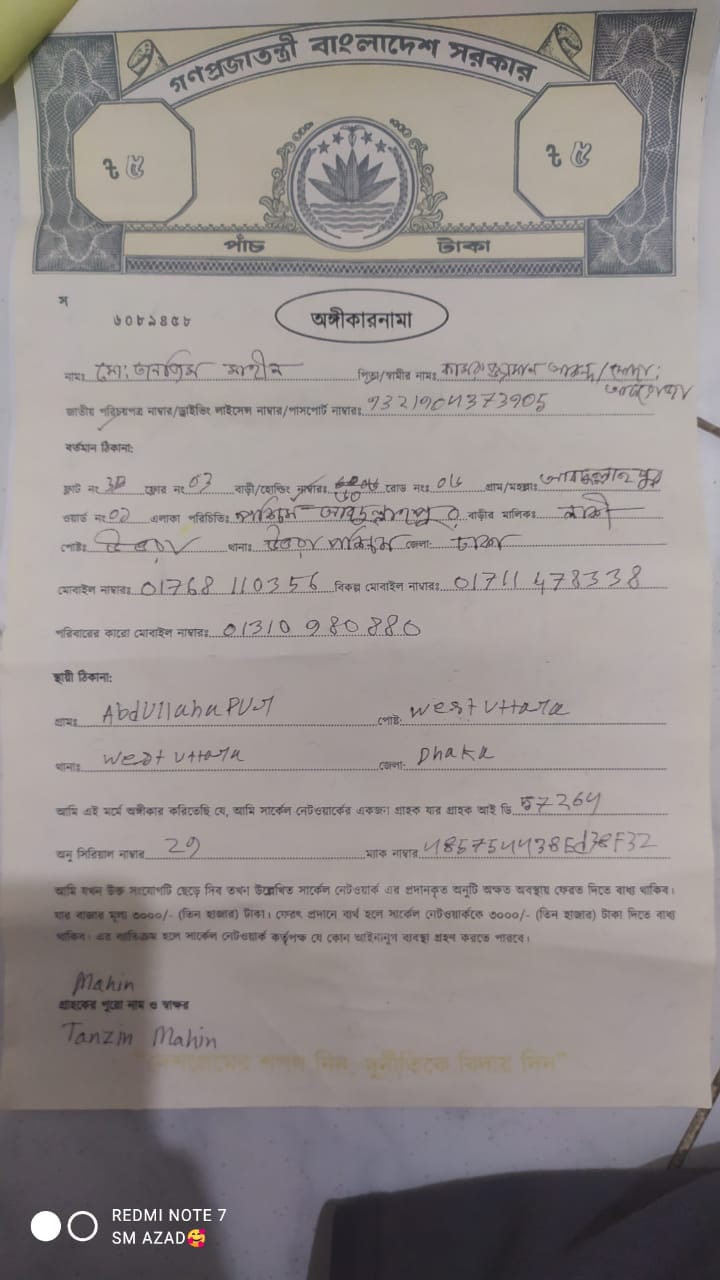 গণপ্রজাতন্ত্রী বাংলাদেশ সরকার
৳ ৫ ৳ ৫
পাঁচ টাকা
স
৬০৮৯৪৫৮
অঙ্গীকারনামা
নামঃ মো: তানজিম মাহীন পিতা/স্বামীর নামঃ
জাতীয় পরিচয়পত্র নাম্বার/ড্রাইভিং লাইসেন্স নাম্বার/পাসপোর্ট নাম্বারঃ
বর্তমান ঠিকানা:
ফ্লাট নং ফ্লোর নং 03 বাড়ী/হোল্ডিং নাম্বারঃ রোড নংঃ 04 গ্রাম/মহল্লাঃ আবদুল্লাহপুর
ওয়ার্ড নং 01 এলাকা পরিচিতিঃ পশ্চিম আবদুল্লাহপুর বাড়ীর মালিকঃ
পোষ্টঃ উত্তরা থানাঃ উত্তরা পশ্চিম জেলা: ঢাকা
মোবাইল নাম্বারঃ 01768 110356 বিকল্প মোবাইল নাম্বারঃ 01711 478338
পরিবারের কারো মোবাইল নাম্বারঃ 01310 980880
স্থায়ী ঠিকানা:
গ্রামঃ Abdullahapur পোষ্ট: West Uttara
থানাঃ West Uttara জেলা: Dhaka
আমি এই মর্মে অঙ্গীকার করিতেছি যে, আমি সার্কেল নেটওয়ার্কের একজন গ্রাহক যার গ্রাহক আই ডি 57264
অনু সিরিয়াল নাম্বার 29 ম্যাক নাম্বার
আমি যখন উক্ত সংযোগটি ছেড়ে দিব তখন উল্লেখিত সার্কেল নেটওয়ার্ক এর প্রদানকৃত অনুটি অক্ষত অবস্থায় ফেরত দিতে বাধ্য থাকিব।
যার বাজার মূল্য ৩০০০/- (তিন হাজার) টাকা। ফেরৎ প্রদানে ব্যর্থ হলে সার্কেল নেটওয়ার্ককে ৩০০০/- (তিন হাজার) টাকা দিতে বাধ্য
থাকিব। এর ব্যতিক্রম হলে সার্কেল নেটওয়ার্ক কর্তৃপক্ষ যে কোন আইনানুগ ব্যবস্থা গ্রহণ করতে পারবে।
Mahin
গ্রাহকের পুরো নাম ও স্বাক্ষর
Tanzim Mahin
"দেশপ্রেমের শপথ নিন, দুর্নীতিকে বিদায় দিন"
REDMI NOTE 7
SM AZAD🥰